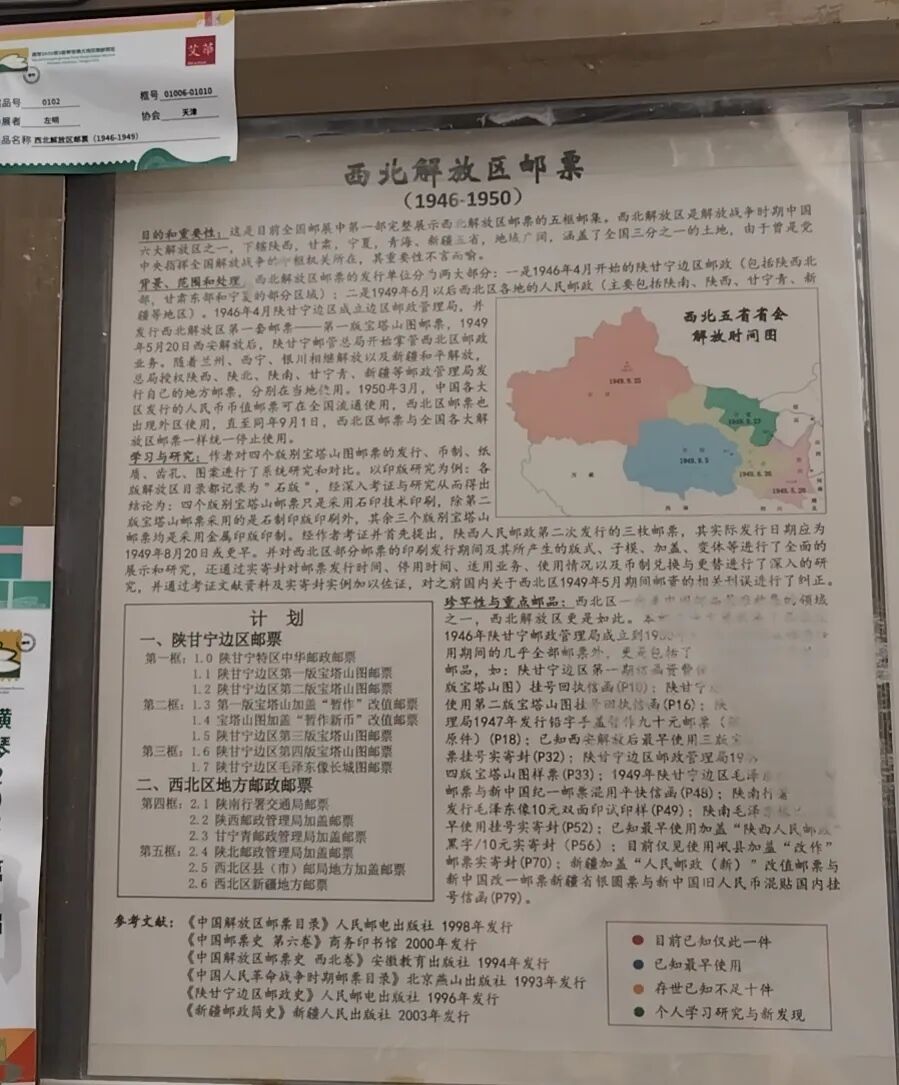 艾革
品号 0102
框号 01006-01010
展者 左明
协会 天津
品名称 西北解放区邮票（1946-1949）
西北解放区邮票
（1946-1950）
目的和重要性：这是目前全国邮展中第一部完整展示西北解放区邮票的五框邮集。西北解放区是解放战争时期中国
六大解放区之一，下辖陕西，甘肃，宁夏，青海、新疆五省，地域广阔，涵盖了全国三分之一的土地，由于曾是党
中央指挥全国解放战争的中枢机关所在，其重要性不言而喻。
背景、范围和处理：西北解放区邮票的发行单位分为两大部分：一是1946年4月开始的陕甘宁边区邮政（包括陕西北
部、甘肃东部和宁夏的部分区域）；二是1949年6月以后西北区各地的人民邮政（主要包括陕南、陕西、甘宁青、新
疆等地区）。1946年4月陕甘宁边区成立边区邮政管理局，并
发行西北解放区第一套邮票——第一版宝塔山图邮票，1949
年5月20日西安解放后，陕甘宁邮管总局开始掌管西北区邮政
业务。随着兰州、西宁、银川相继解放以及新疆和平解放，
总局授权陕西、陕北、陕南、甘宁青、新疆等邮政管理局发
行自己的地方邮票，分别在当地使用。1950年3月，中国各大
区发行的人民币币值邮票可在全国流通使用，西北区邮票也
出现外区使用，直至同年9月1日，西北区邮票与全国各大解
放区邮票一样统一停止使用。
西北五省省会
解放时间图
1949.9.25
1949.9.27
1949.9.5
1949.8.26
1949.5.20
学习与研究：作者对四个版别宝塔山图邮票的发行、币制、纸
质、齿孔、图案进行了系统研究和对比。以印版研究为例：各
版解放区目录都记录为"石版"，经深入考证与研究从而得出
结论为：四个版别宝塔山邮票只是采用石印技术印刷，除第二
版宝塔山邮票采用的是石制印版印刷外，其余三个版别宝塔山
邮票均是采用金属印版印制。经作者考证并首先提出，陕西人民邮政第二次发行的三枚邮票，其实际发行日期应为
1949年8月20日或更早。并对西北区部分邮票的印刷发行期间及其所产生的版式、子模、加盖、变体等进行了全面的
展示和研究，还通过实寄封对邮票发行时间、停用时间、适用业务、使用情况以及币制兑换与更替进行了深入的研
究，并通过考证文献资料及实寄封实例加以佐证，对之前国内关于西北区1949年5月期间邮资的相关刊误进行了纠正。
计 划
一、陕甘宁边区邮票
第一框：1.0 陕甘宁特区中华邮政邮票
1.1 陕甘宁边区第一版宝塔山图邮票
1.2 陕甘宁边区第二版宝塔山图邮票
第二框：1.3 第一版宝塔山加盖"暂作"改值邮票
1.4 宝塔山图加盖"暂作新币"改值邮票
1.5 陕甘宁边区第三版宝塔山图邮票
第三框：1.6 陕甘宁边区第四版宝塔山图邮票
1.7 陕甘宁边区毛泽东像长城图邮票
二、西北区地方邮政邮票
第四框：2.1 陕南行署交通局邮票
2.2 陕西邮政管理局加盖邮票
2.3 甘宁青邮政管理局加盖邮票
第五框：2.4 陕北邮政管理局加盖邮票
2.5 西北区县（市）邮局地方加盖邮票
2.6 西北区新疆地方邮票
珍罕性与重点邮品：西北区一 领域
之一，西北解放区更是如此。
1946年陕甘宁邮政管理局成立到
用期间的几乎全部邮票外，更是包括了
邮品，如：陕甘宁边区第一期信函资费
版宝塔山图）挂号回执信函(P10)；陕甘宁
使用第二版宝塔山图挂号回执信函(P16)；陕
理局1947年发行铅字手盖暂作九十元邮票
原件）(P18)；已知西安解放后最早使用三版宝
票挂号实寄(P32)；陕甘宁边区邮政管理局
四版宝塔山图样票(P33)；1949年陕甘宁边区毛泽
邮票与新中国纪一邮票混用平快信函(P48)；陕南行
发行毛泽东像10元双面印试印样(P49)；陕南毛泽
早使用挂号实寄封(P52)；已知最早使用加盖"陕西人民邮政"
黑字/10元实寄封（P56)；目前仅见使用岷县加盖"改作"
邮票实寄封(P70)；新疆加盖"人民邮政（新）"改值邮票与
新中国改一邮票新疆省银圆票与新中国旧人民币混贴国内挂
号信函(P79)。
参考文献：《中国解放区邮票目录》人民邮电出版社 1998年发行
《中国邮票史 第六卷》商务印书馆 2000年发行
《中国解放区邮票史 西北卷》安徽教育出版社 1994年发行
《中国人民革命战争时期邮票目录》北京燕山出版社 1993年发行
《陕甘宁边区邮政史》人民邮电出版社 1996年发行
《新疆邮政简史》新疆人民出版社 2003年发行
目前已知仅此一件
已知最早使用
存世已知不足十件
个人学习研究与新发现